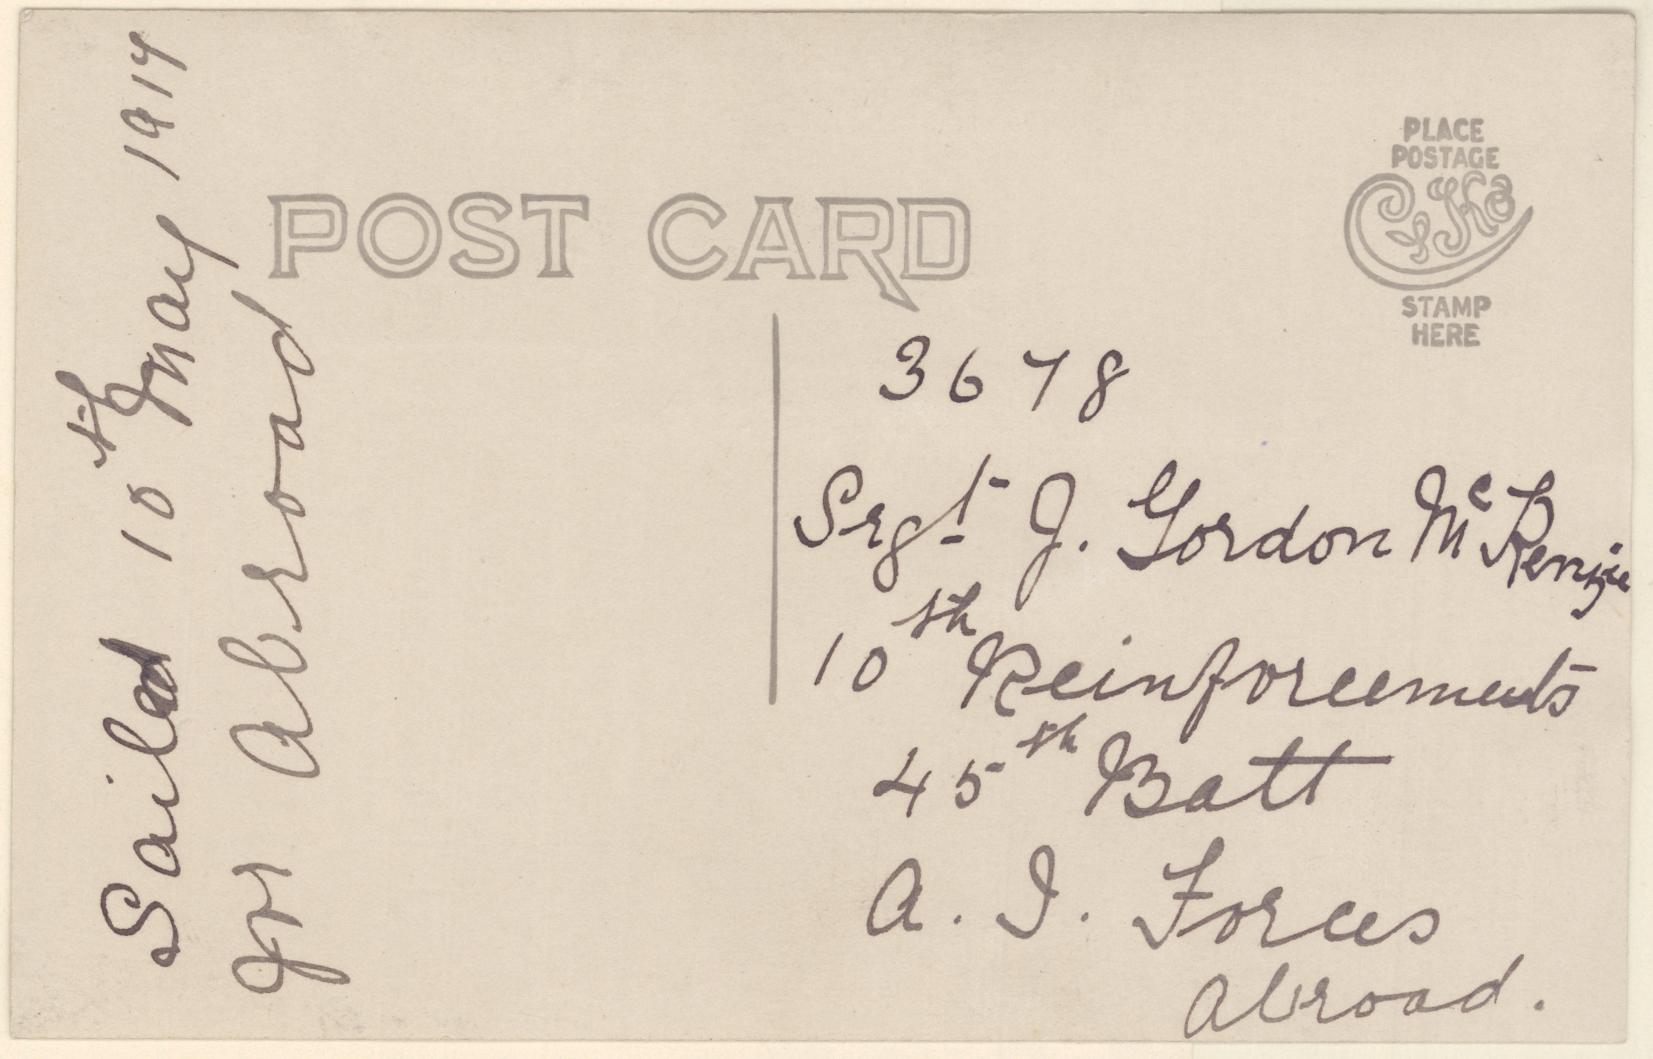 Sailed 10th May 1917
for Abroad
POST CARD
PLACE
POSTAGE
STAMP
HERE
3678
Srgt J. Gordon McKenzie
10th Reinforcements
45th Batt
A. I. Forces
abroad.